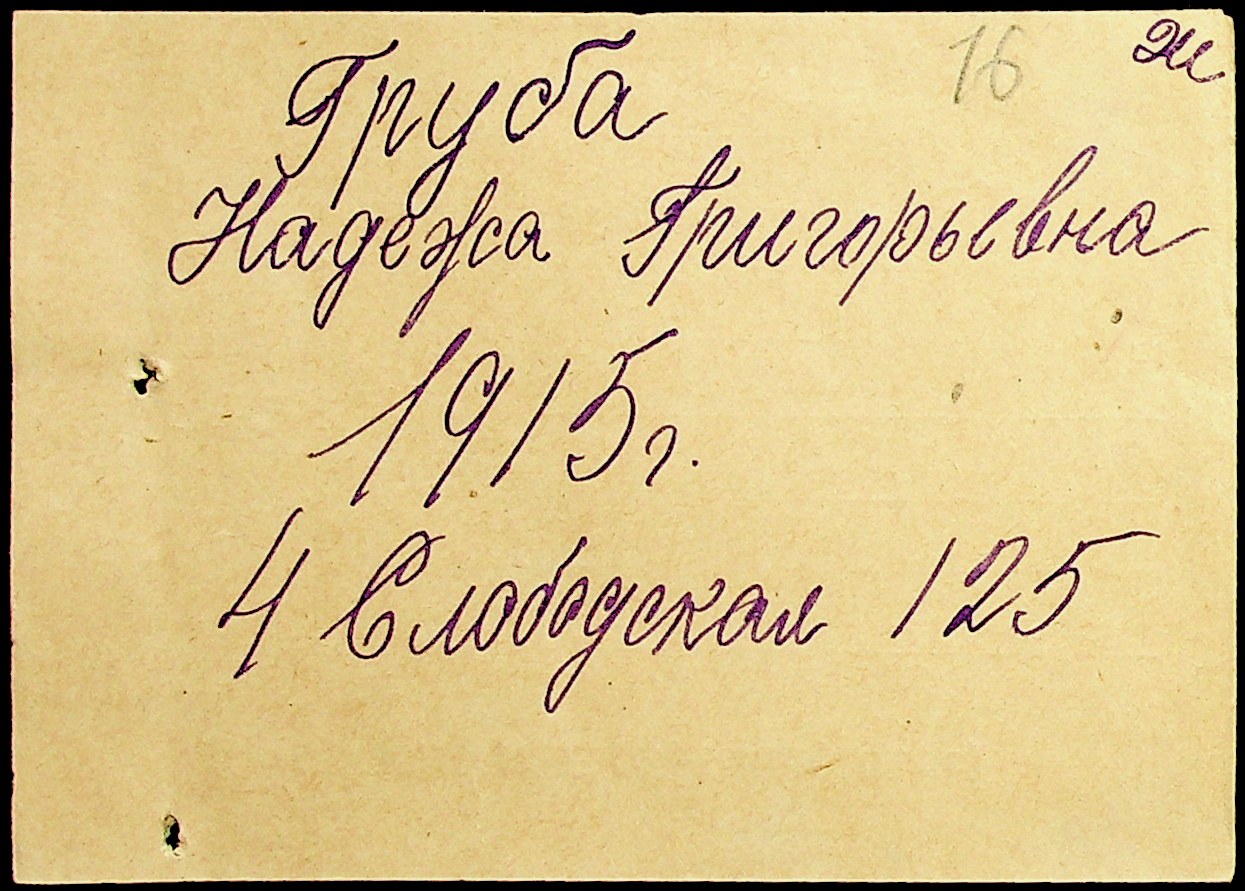 16
Груба
Надежа Григорьевна
1915 г.
4 Слободская 125